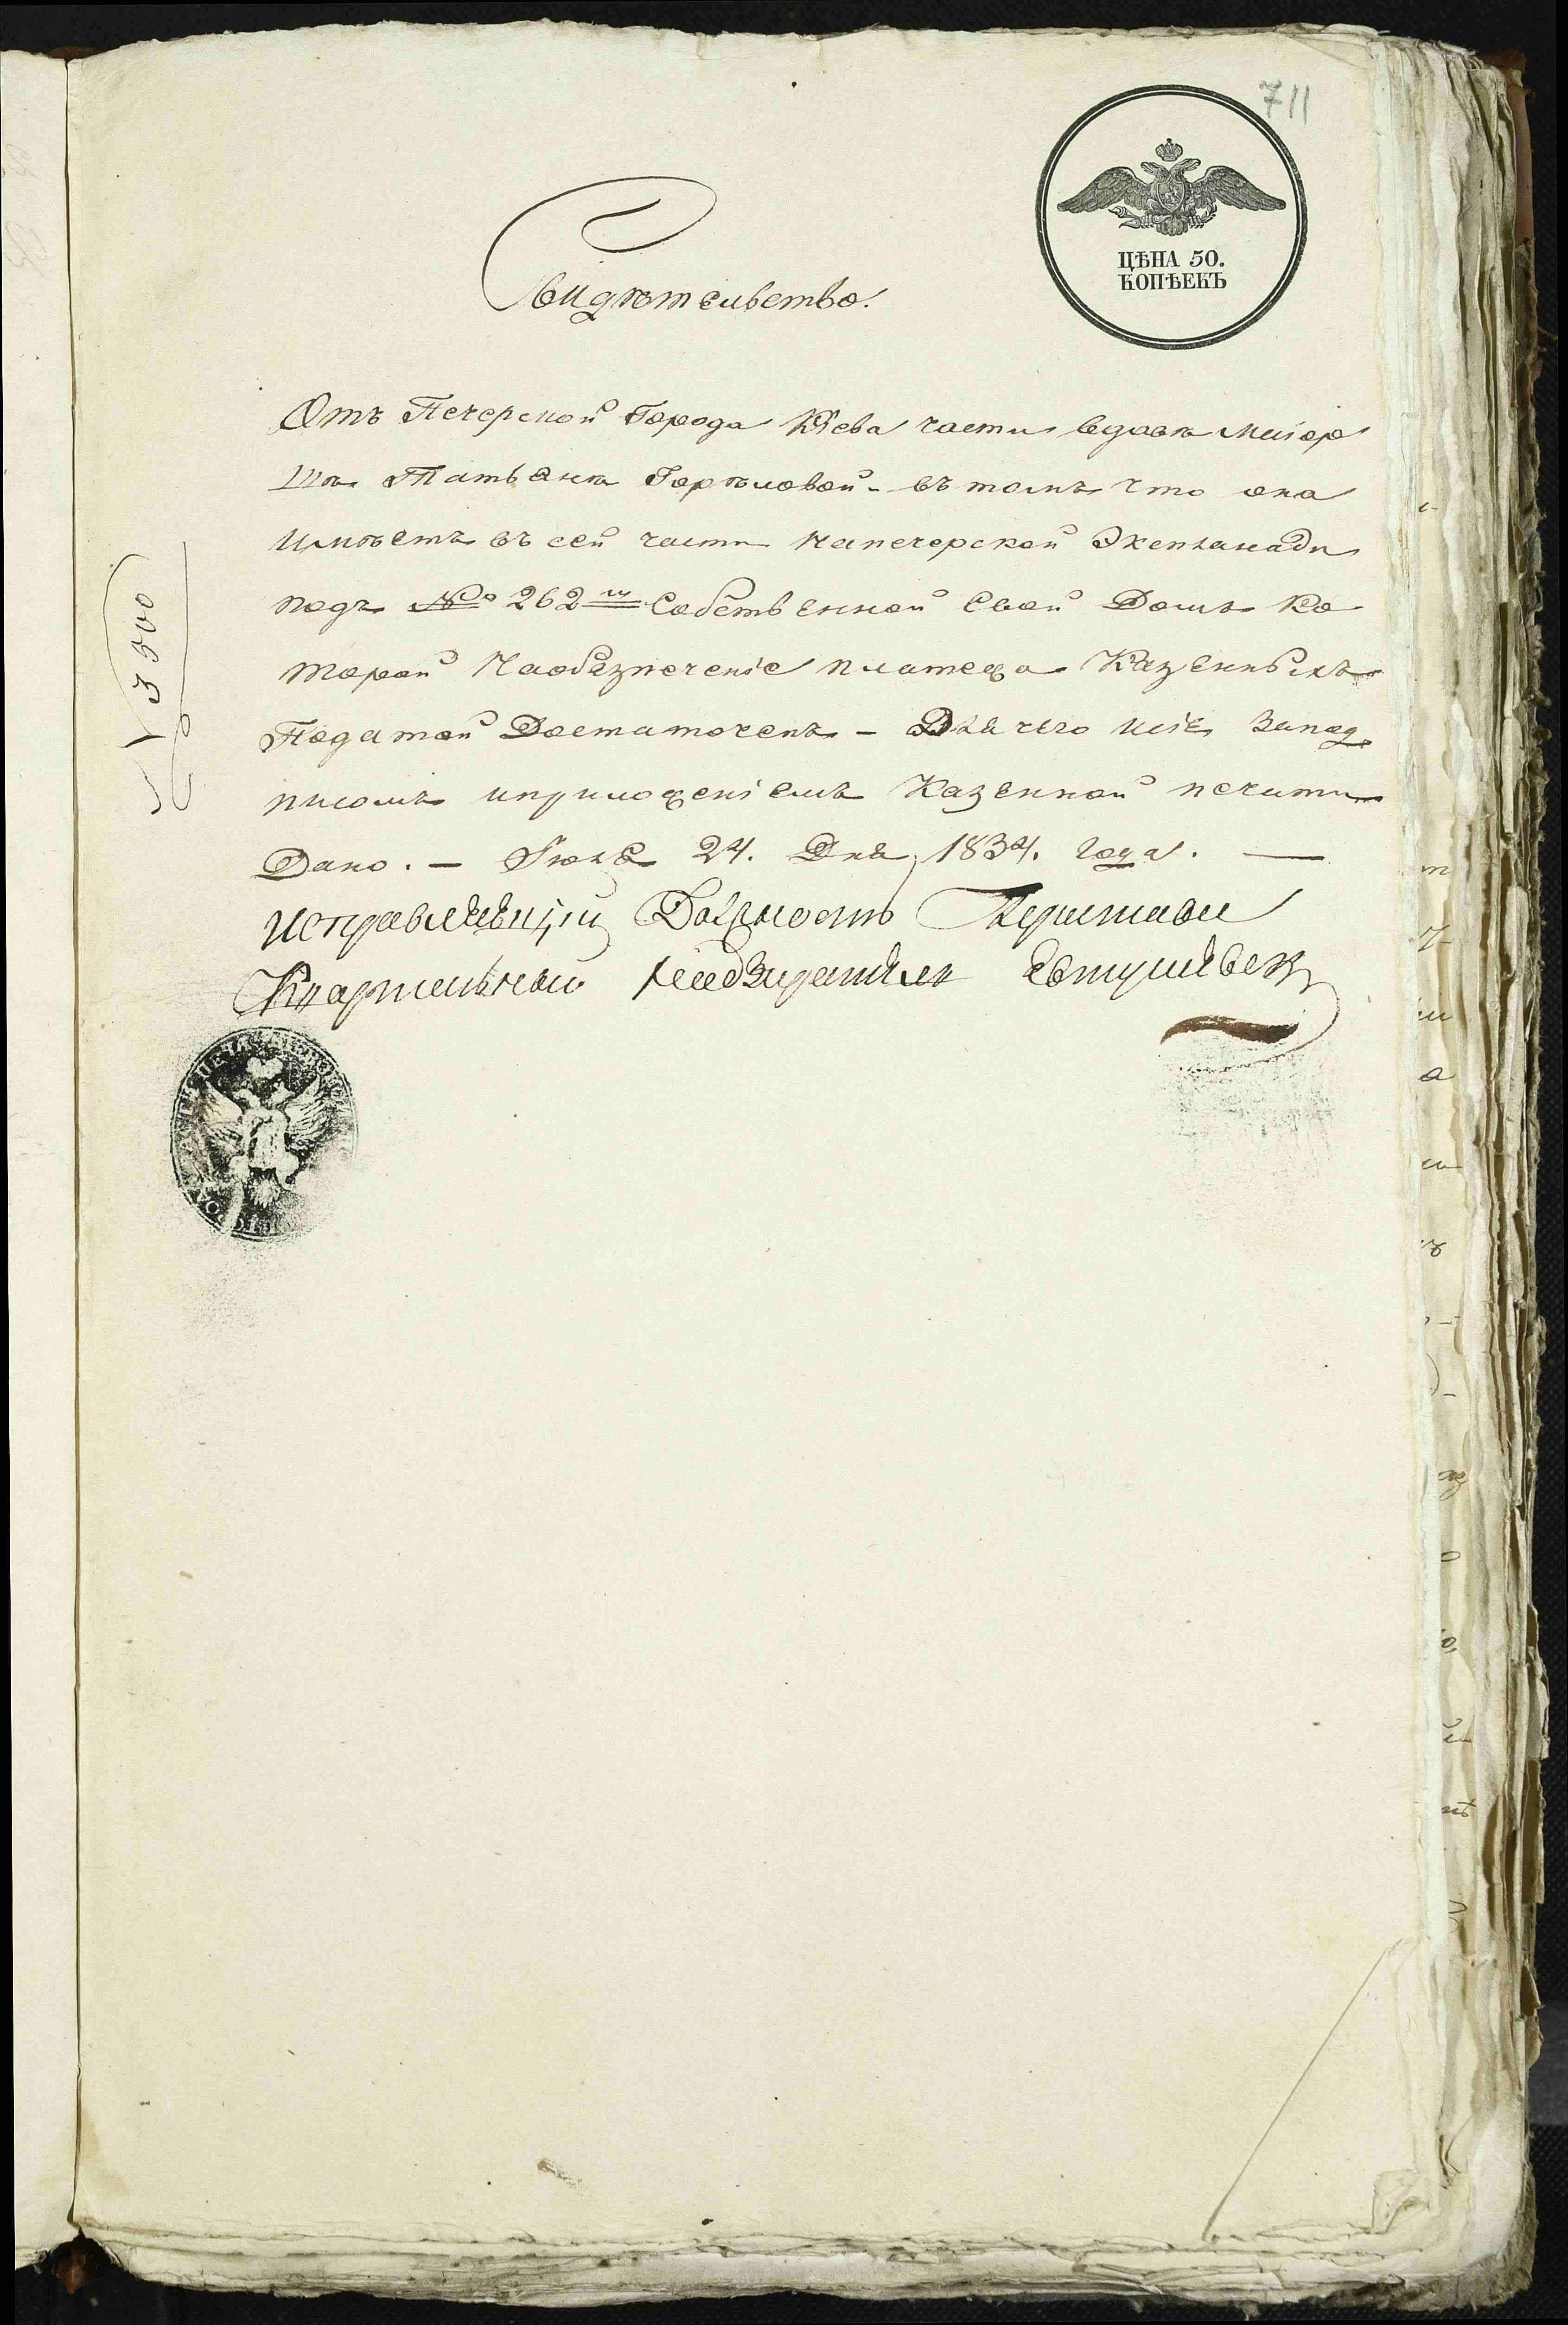 711
ЦѢНА 50.
КОПѢЕКЪ
Свидѣтельство.
Отъ Печерской Города Кіева части вдовѣ Маіор
шѣ Татьянѣ Горѣловой - въ томъ что она
имѣетъ въ сей части Напечерской Эспланади
подъ № 262м Собственной Свой Домъ Ко
торой Наобазпеченіе платежа Казенныхъ
Податей Достаточенъ - Для чего сіе Запод
писомъ иприложеніемъ Казенной печати
Дано. - Іюля 24. Дня 1834. года. —
исправляющій Должность Пристава
Квартальный Надзиратель Евтушевск
3500